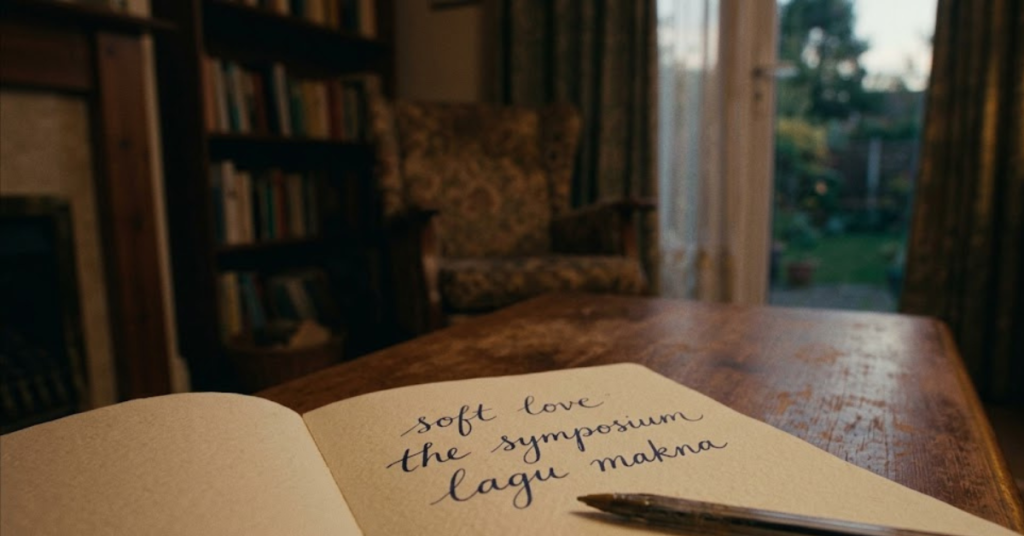 soft love
the symposium
lagu makna